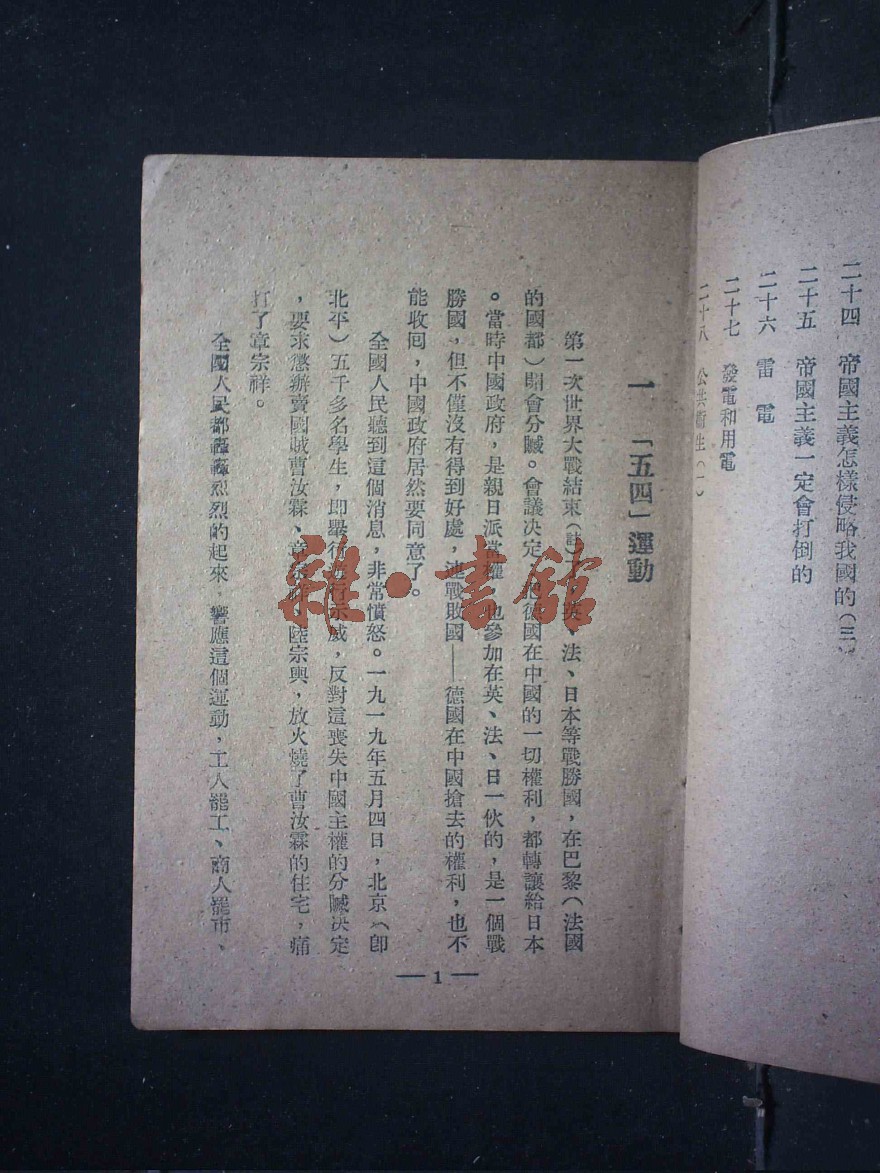 二十四　帝國主義怎樣侵略我國的（三）
二十五　帝國主義一定會打倒的
二十六　雷電
二十七　發電和用電
二十八　公共衞生（一）
一　「五四」運動
第一次世界大戰結束（註）英、法、日本等戰勝國，在巴黎（法國
的國都）開會分贓。會議決定把德國在中國的一切權利，都轉讓給日本
。當時中國政府，是親日派當權，也參加在英、法、日一伙的，是一個戰
勝國，但不僅沒有得到好處，連戰敗國——德國在中國搶去的權利，也不
能收囘，中國政府居然要同意了。
全國人民聽到這個消息，非常憤怒。一九一九年五月四日，北京（卽
北平）五千多名學生，即舉行遊行示威，反對這喪失中國主權的分贓決定
，要求懲辦賣國賊曹汝霖、章宗祥、陸宗輿，放火燒了曹汝霖的住宅，痛
打了章宗祥。
全國人民都轟轟烈烈的起來，響應這個運動，工人罷工、商人罷市、
—1—
雜·書館